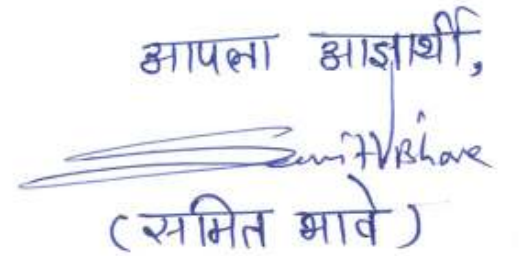 आपला आज्ञार्थी,
Samit V Bhave
(समित भावे)